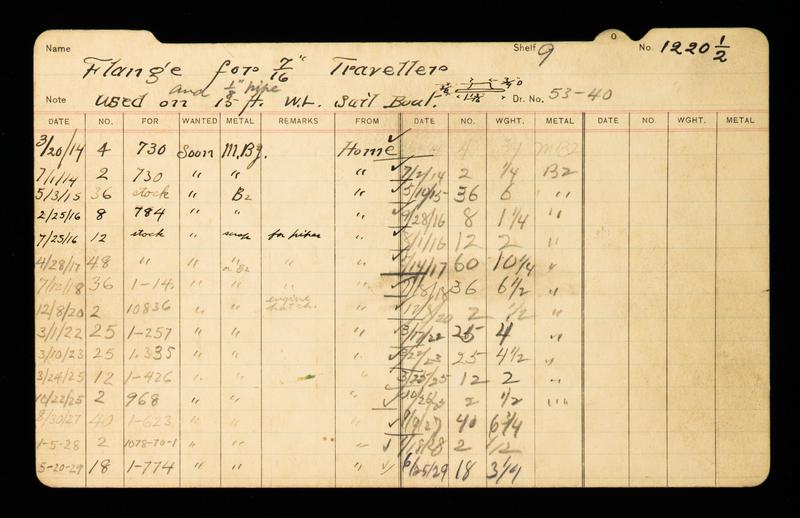 Name Flange for 7/16" Travellers Shelf 9 No. 1220 1/2
and 1/8" pipe
Note Used on 15 ft. W.L. Sail Boat. Dr. No. 53-40
DATE NO. FOR WANTED METAL REMARKS FROM DATE NO. WGHT. METAL DATE NO. WGHT. METAL
3/20/14 4 730 Soon M.Bz. Home 4 3/4 MBZ
7/1/14 2 730 " " " 7/2/14 2 1/4 BZ
5/3/15 36 stock Bz " 5/14/15 36 6 "
2/25/16 8 784 " " " 9/28/16 8 1 1/4 "
7/25/16 12 stock " scrap for pipes " 8/1/16 12 2 "
4/28/17 48 " " " or Bz " " 5/14/17 60 10 1/4 "
7/12/18 36 1-14 " " " " 7/18/18 36 6 1/2 "
12/8/20 2 10836 " " engine hatch. " 2 1/2 "
3/1/22 25 1-257 " " " 3/17/22 25 4 "
3/10/23 25 1-335 " " " 25 4 1/2 "
3/24/25 12 1-426 " " " 3/25/25 12 2 "
10/22/25 2 968 " " " 10/26/25 2 1/2 "
8/30/27 40 1-623 " " " 9/9/27 40 6 3/4
1-5-28 2 1078-70-1 " " " 1/18/28 2 1/2
5-20-29 18 1-774 " " " 6/25/29 18 3 1/4